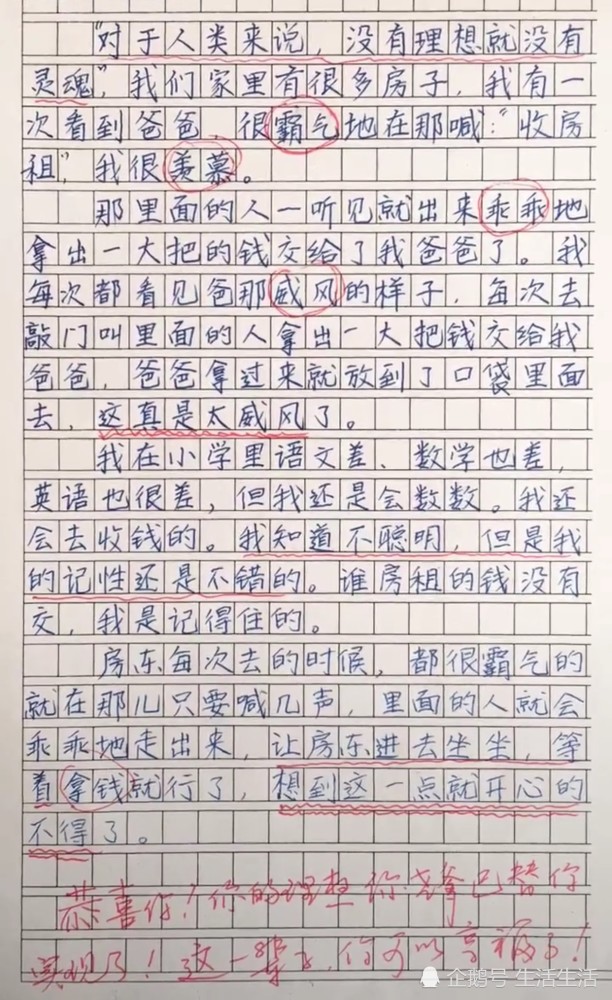 “对于人类来说，没有理想就没有
灵魂”，我们家里有很多房子，我有一
次看到爸爸，很霸气地在那喊：“收房
租”，我很羡慕。
那里面的人一听见就出来乖乖地
拿出一大把的钱交给了我爸爸了。我
每次都看见爸那威风的样子，每次去
敲门叫里面的人拿出一大把钱交给我
爸爸，爸爸拿过来就放到了口袋里面
去，这真是太威风了。
我在小学里语文差、数学也差，
英语也很差，但我还是会数数。我还
会去收钱的。我知道不聪明，但是我
的记性还是不错的。谁房租的钱没有
交，我是记得住的。
房东每次去的时候，都很霸气的
就在那儿只要喊几声，里面的人就会
乖乖地走出来，让房东进去坐坐，等
着拿钱就行了，想到这一点就开心的
不得了。
恭喜你！你的理想你老爹已替你
实现了！这一辈子，你可以享福了！
企鹅号 生活生活